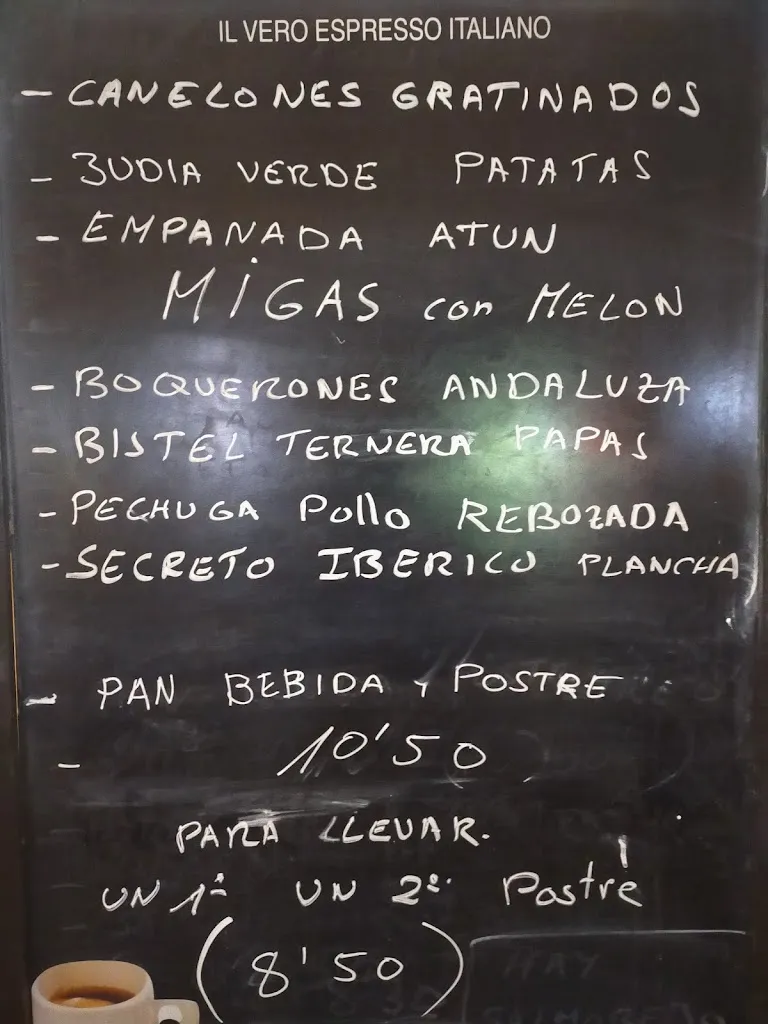 IL VERO ESPRESSO ITALIANO
- CANELONES GRATINADOS
- JUDIA VERDE PATATAS
- EMPANADA ATUN
MIGAS con MELON
- BOQUERONES ANDALUZA
- BISTEL TERNERA PAPAS
- PECHUGA Pollo REBOZADA
- SECRETO IBERICO PLANCHA
- PAN BEBIDA Y POSTRE
- 10'50
PARA LLEVAR.
UN 1º UN 2º Postre
(8'50)
HAY